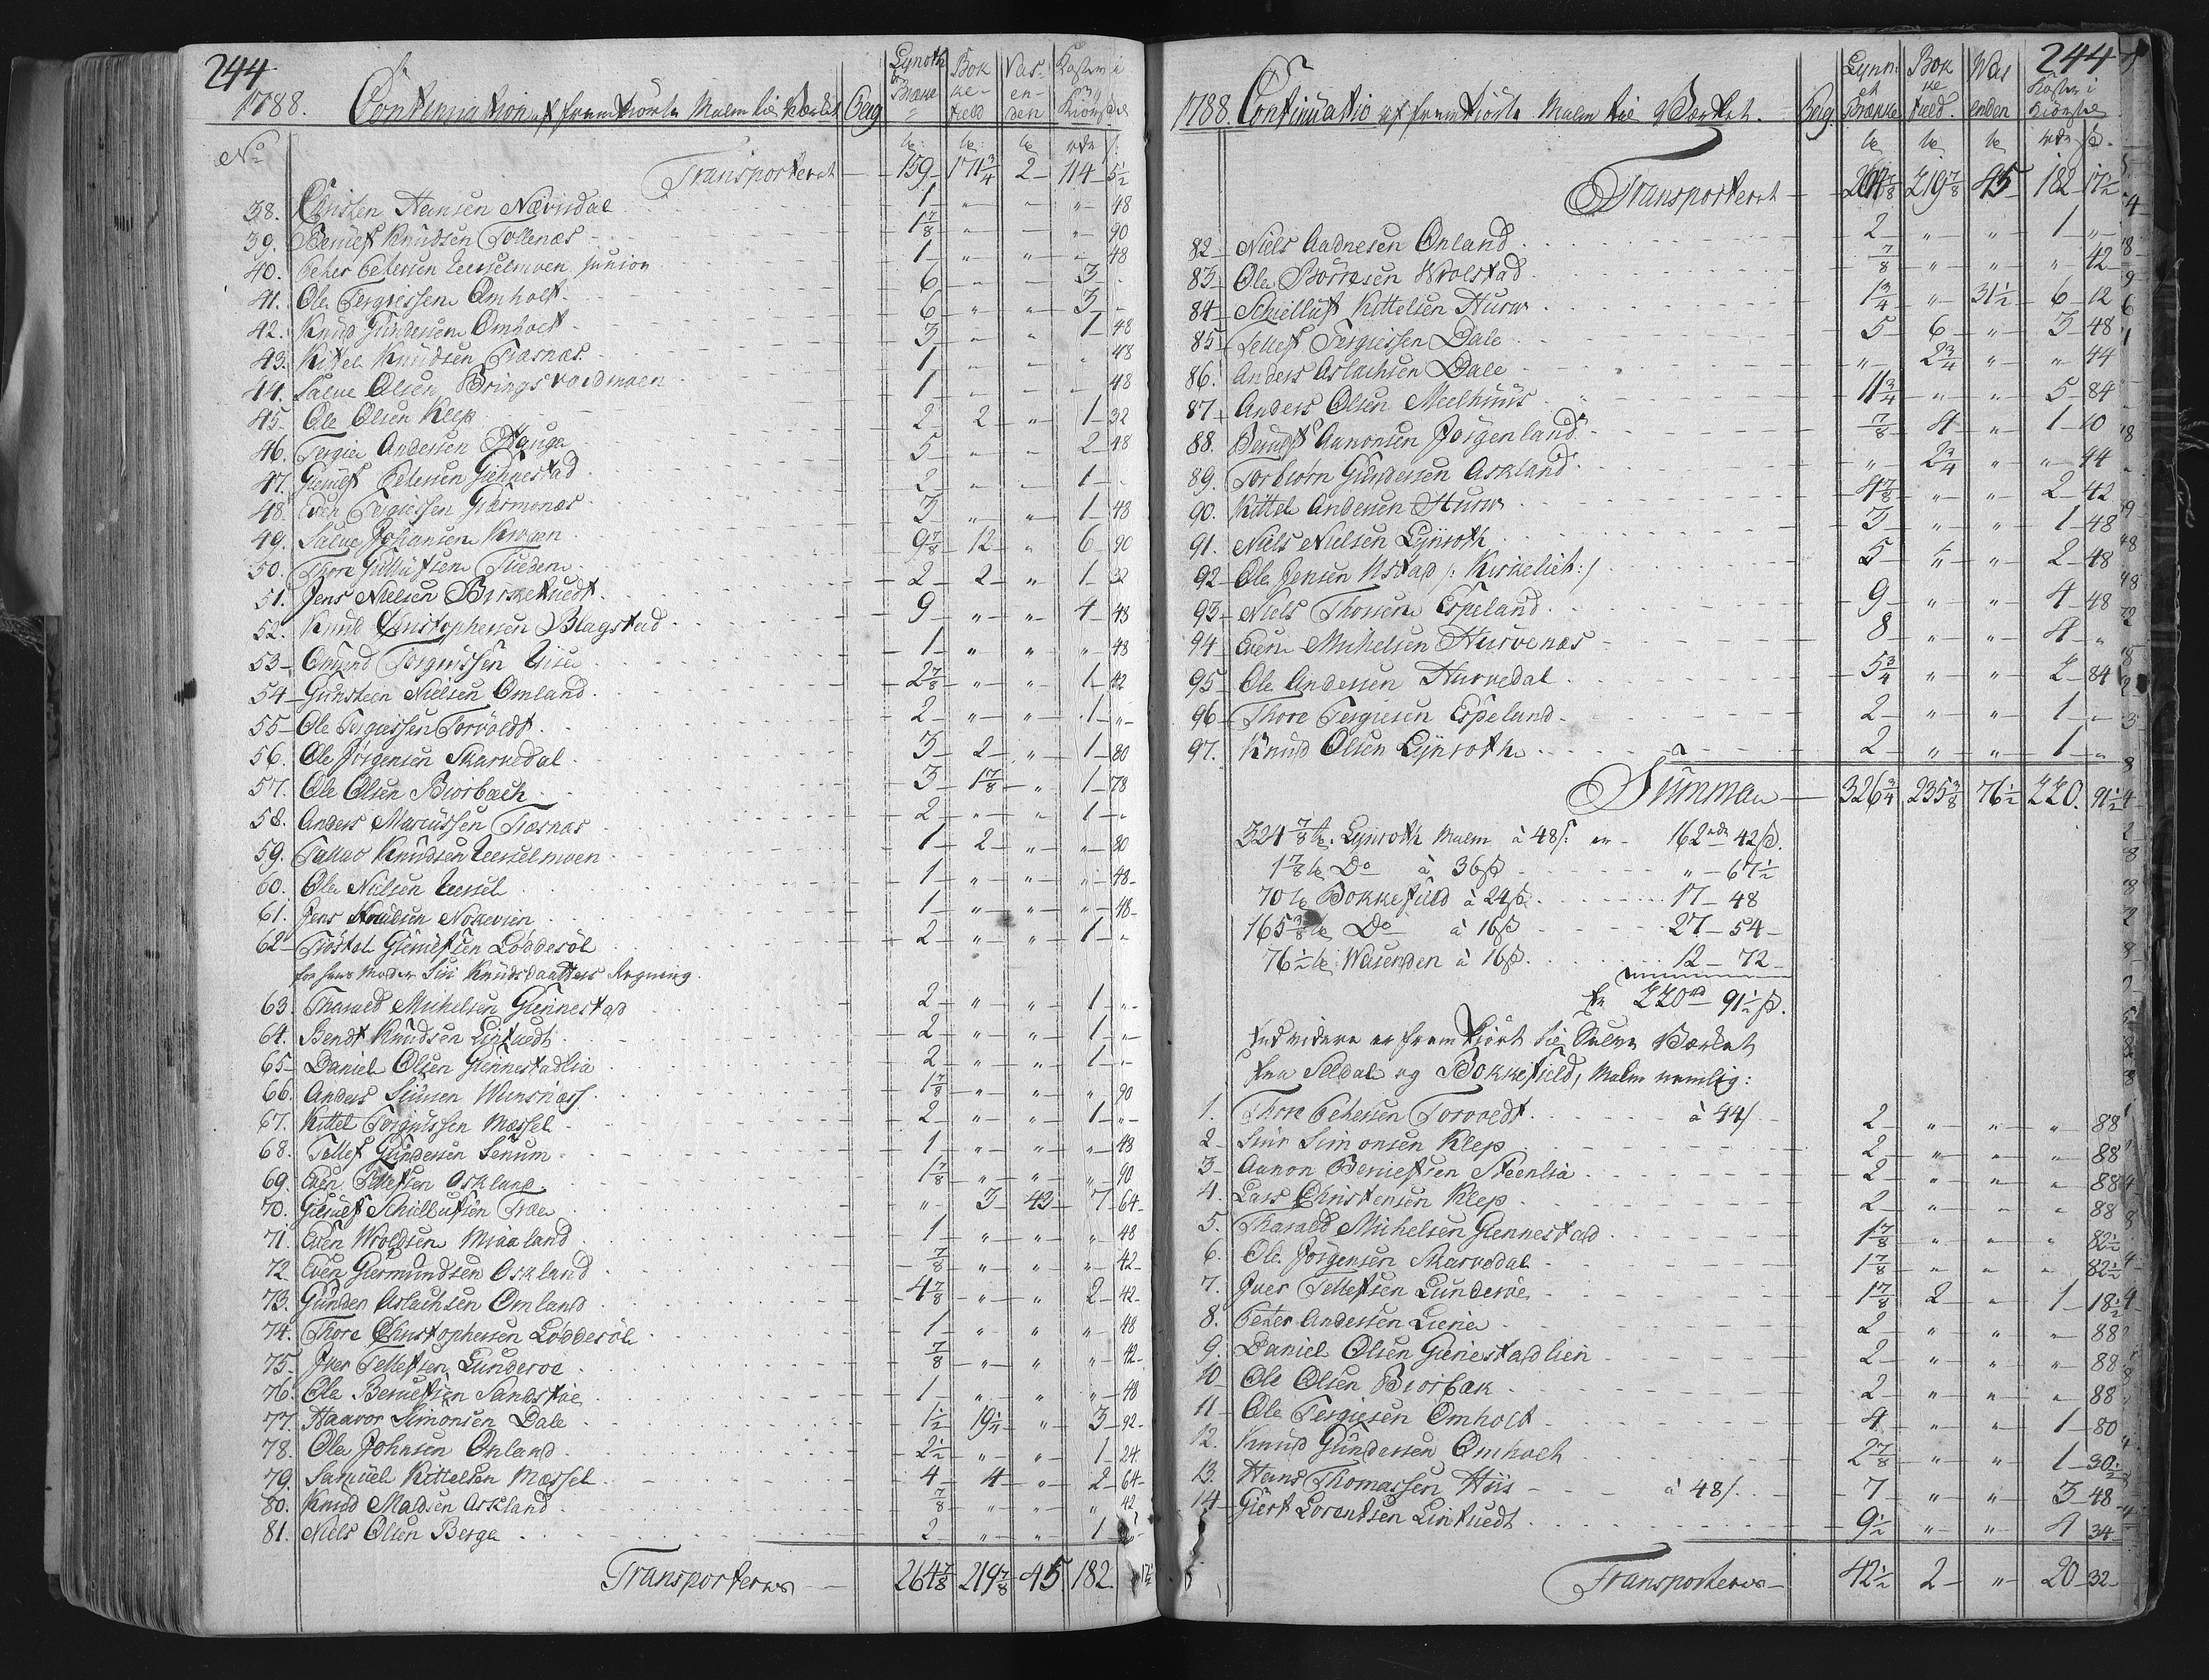 244
1788. Continuation af fremkiörte Malm til Værket
Berg
Lynroth Brække
Bokkefield
Vasenden
Kosten i Kiörsel
No
Transporteret 159 171 3/4 2 114 5 1/2
38. Christen Hansen Nævisdal 1 " " " 48
39. Beruef Knudsen Tollenæs 1 7/8 " " " 90
40. Peter Petersen Uerselmoen junior 1 " " " 48
41. Ole Tergiessen Omholt 6 " " 3 "
42. Knud Gundersen Omholt 6 " " 3 "
43. Kittel Knudsen Træsnæs 3 " " 1 48
44. Salve Olsen Bringsværdmoen 1 " " " 48
45. Ole Olsen Klep 1 " " " 48
46. Tergie Andersen Houga 2 2 " 1 32
47. Gieruef Petersen Giennestad 5 " " 2 48
48. Even Tergiessen Giermonæs 2 " " 1 "
49. Salve Johansen Krogen 3 " " 1 48
50. Thore Gullufsen Tueden 9 7/8 12 " 6 90
51. Jens Nielsen Birketuedt 2 2 " 1 32
52. Knud Christophersen Blagstad 9 " " 4 48
53. Omund Torgiussen Uise 1 " " " 48
54. Gunsteen Nielsen Omland 2 7/8 " " 1 42
55. Ole Tergiessen Torvoldt 2 " " 1 "
56. Ole Jörgensen Skarvedal 3 2 " 1 80
57. Ole Olsen Biorbach 3 1 7/8 " 1 78
58. Anders Marcussen Træsnæs 2 " " 1 "
59. Tallao Knudsen Uerselmoen 1 2 " " 80
60. Ole Nielsen Uersel 1 " " " 48
61. Jens Knudsen Nokevien 1 " " " 48
62. Tröstel Gieruefsen Löddesöl 2 " " 1 "
for hans Moder Siri Knudsdaatters Regning
63. Tharald Michelsen Giennestad 2 " " 1 "
64. Bendt Knudsen Lintuedt 2 " " 1 "
65. Daniel Olsen Giennestadlia 2 " " 1 "
66. Anders Siursen Wensnæs 1 7/8 " " " 90
67. Kittel Torgiussen Mæssel 2 " " 1 "
68. Tellef Gundersen Senum 1 " " " 48
69. Even Tellefsen Askland 1 7/8 " " " 90
70. Gieruef Schiellufsen Træe " 3 43 7 64
71. Even Wroldsen Miaaland 1 " " " 48
72. Even Giermundsen Askland 7/8 " " " 42
73. Gunder Aslachsen Omland 4 7/8 " " 2 42
74. Thore Christophersen Löddesöl 1 " " " 48
75. Jver Tellefsen Lunderöe 7/8 " " " 42
76. Ole Beruefsen Sandstöe 1 " " " 48
77. Haavor Simonsen Dale 1 1/2 19 1/4 " 3 92
78. Ole Johnsen Onland 2 1/2 " " 1 24
79. Samuel Kittelsen Mæssel 4 4 " 2 64
80. Knud Madsen Askland 7/8 " " " 42
81. Niels Olsen Berge 2 " " 1
Transporteres 264 7/8 219 7/8 45 182 17 1/2
244
1788. Continuatio af fremkiörte Malm til Værket.
Berg.
Lynroth Brække
Bokkefield.
Wasenden
Kosten i Kiörsel
Transporteret 264 7/8 219 7/8 45 182 17 1/2
82 Niels Aadnesen Onland 2 " " 1 "
83 Ole Börresen Wrolstad 7/8 " " " 42
84 Schielluf Kittelsen Hurw 1 3/4 " 31 1/2 6 12
85 Tellef Tergiessen Dale 5 6 " 3 48
86. Anders Aslachsen Dale " 2 3/4 " " 44
87 Anders Olsen Meelhuus 11 3/4 " " 5 84
88. Beruef Aanonsen Jörgenland 7/8 4 " 1 10
89. Torbiorn Gundersen Askland " 2 3/4 " " 44
90. Kittel Andersen Hurw 4 7/8 " " 2 42
91. Niels Nielsen Lynroth 3 " " 1 48
92 Ole Jensen Ustad /: Kirkelieh:/ 5 " " 2 48
93 Niels Thorsen Espeland 9 " " 4 48
94 Even Michelsen Hurvenæs 8 " " 4 "
95 Ole Andersen Hurvedal 5 3/4 " " 2 84
96 Thore Tergiesen Espeland 2 " " 1 "
97. Knud Olsen Lynroth 2 " " 1 "
Summa 326 3/4 235 3/8 76 1/2 220. 91 1/2
324 7/8 Lynroth Malm à 48 s. er 162 rdr 42 s.
1 7/8 Do à 36 s " 67 1/2
70 Bokkefield à 24 s 17 48
165 3/8 Do à 16 s 27 54
76 1/2 Wasenden à 16 s 12 72
er 220 rd 91 1/2 s.
Endvidere er fremkiört til Selve Værket
fra Seldal og Bokkefield, Malm nemlig:
1. Thore Petersen Torvedt à 44 s 2 " " " 88
2 Siur Simonsen Klep 2 " " " 88
3 Aanon Beruefsen Steenlia 2 " " " 88
4. Lars Christensen Klep 2 " " " 88
5. Tharald Michelsen Giennestad 1 7/8 " " " 82 1/2
6. Ole Jörgensen Skarvedal 1 7/8 " " " 82 1/2
7. Jver Tellefsen Lunderöe 1 7/8 2 " 1 18 1/2
8. Peter Andersen Lierie 2 " " " 88
9. Daniel Olsen Gienestadlien 2 " " " 88
10 Ole Olsen Biorbak 2 " " " 88
11 Ole Tergiesen Omholt 4 " " 1 80
12. Knud Gundersen Omholt 2 7/8 " " 1 30 1/2
13. Hans Thomassen Hiis à 48 s 7 " " 3 48
14 Giert Lorentsen Lintuedt 9 1/2 " " 4 34
Transporteres 42 1/2 2 " 20 32